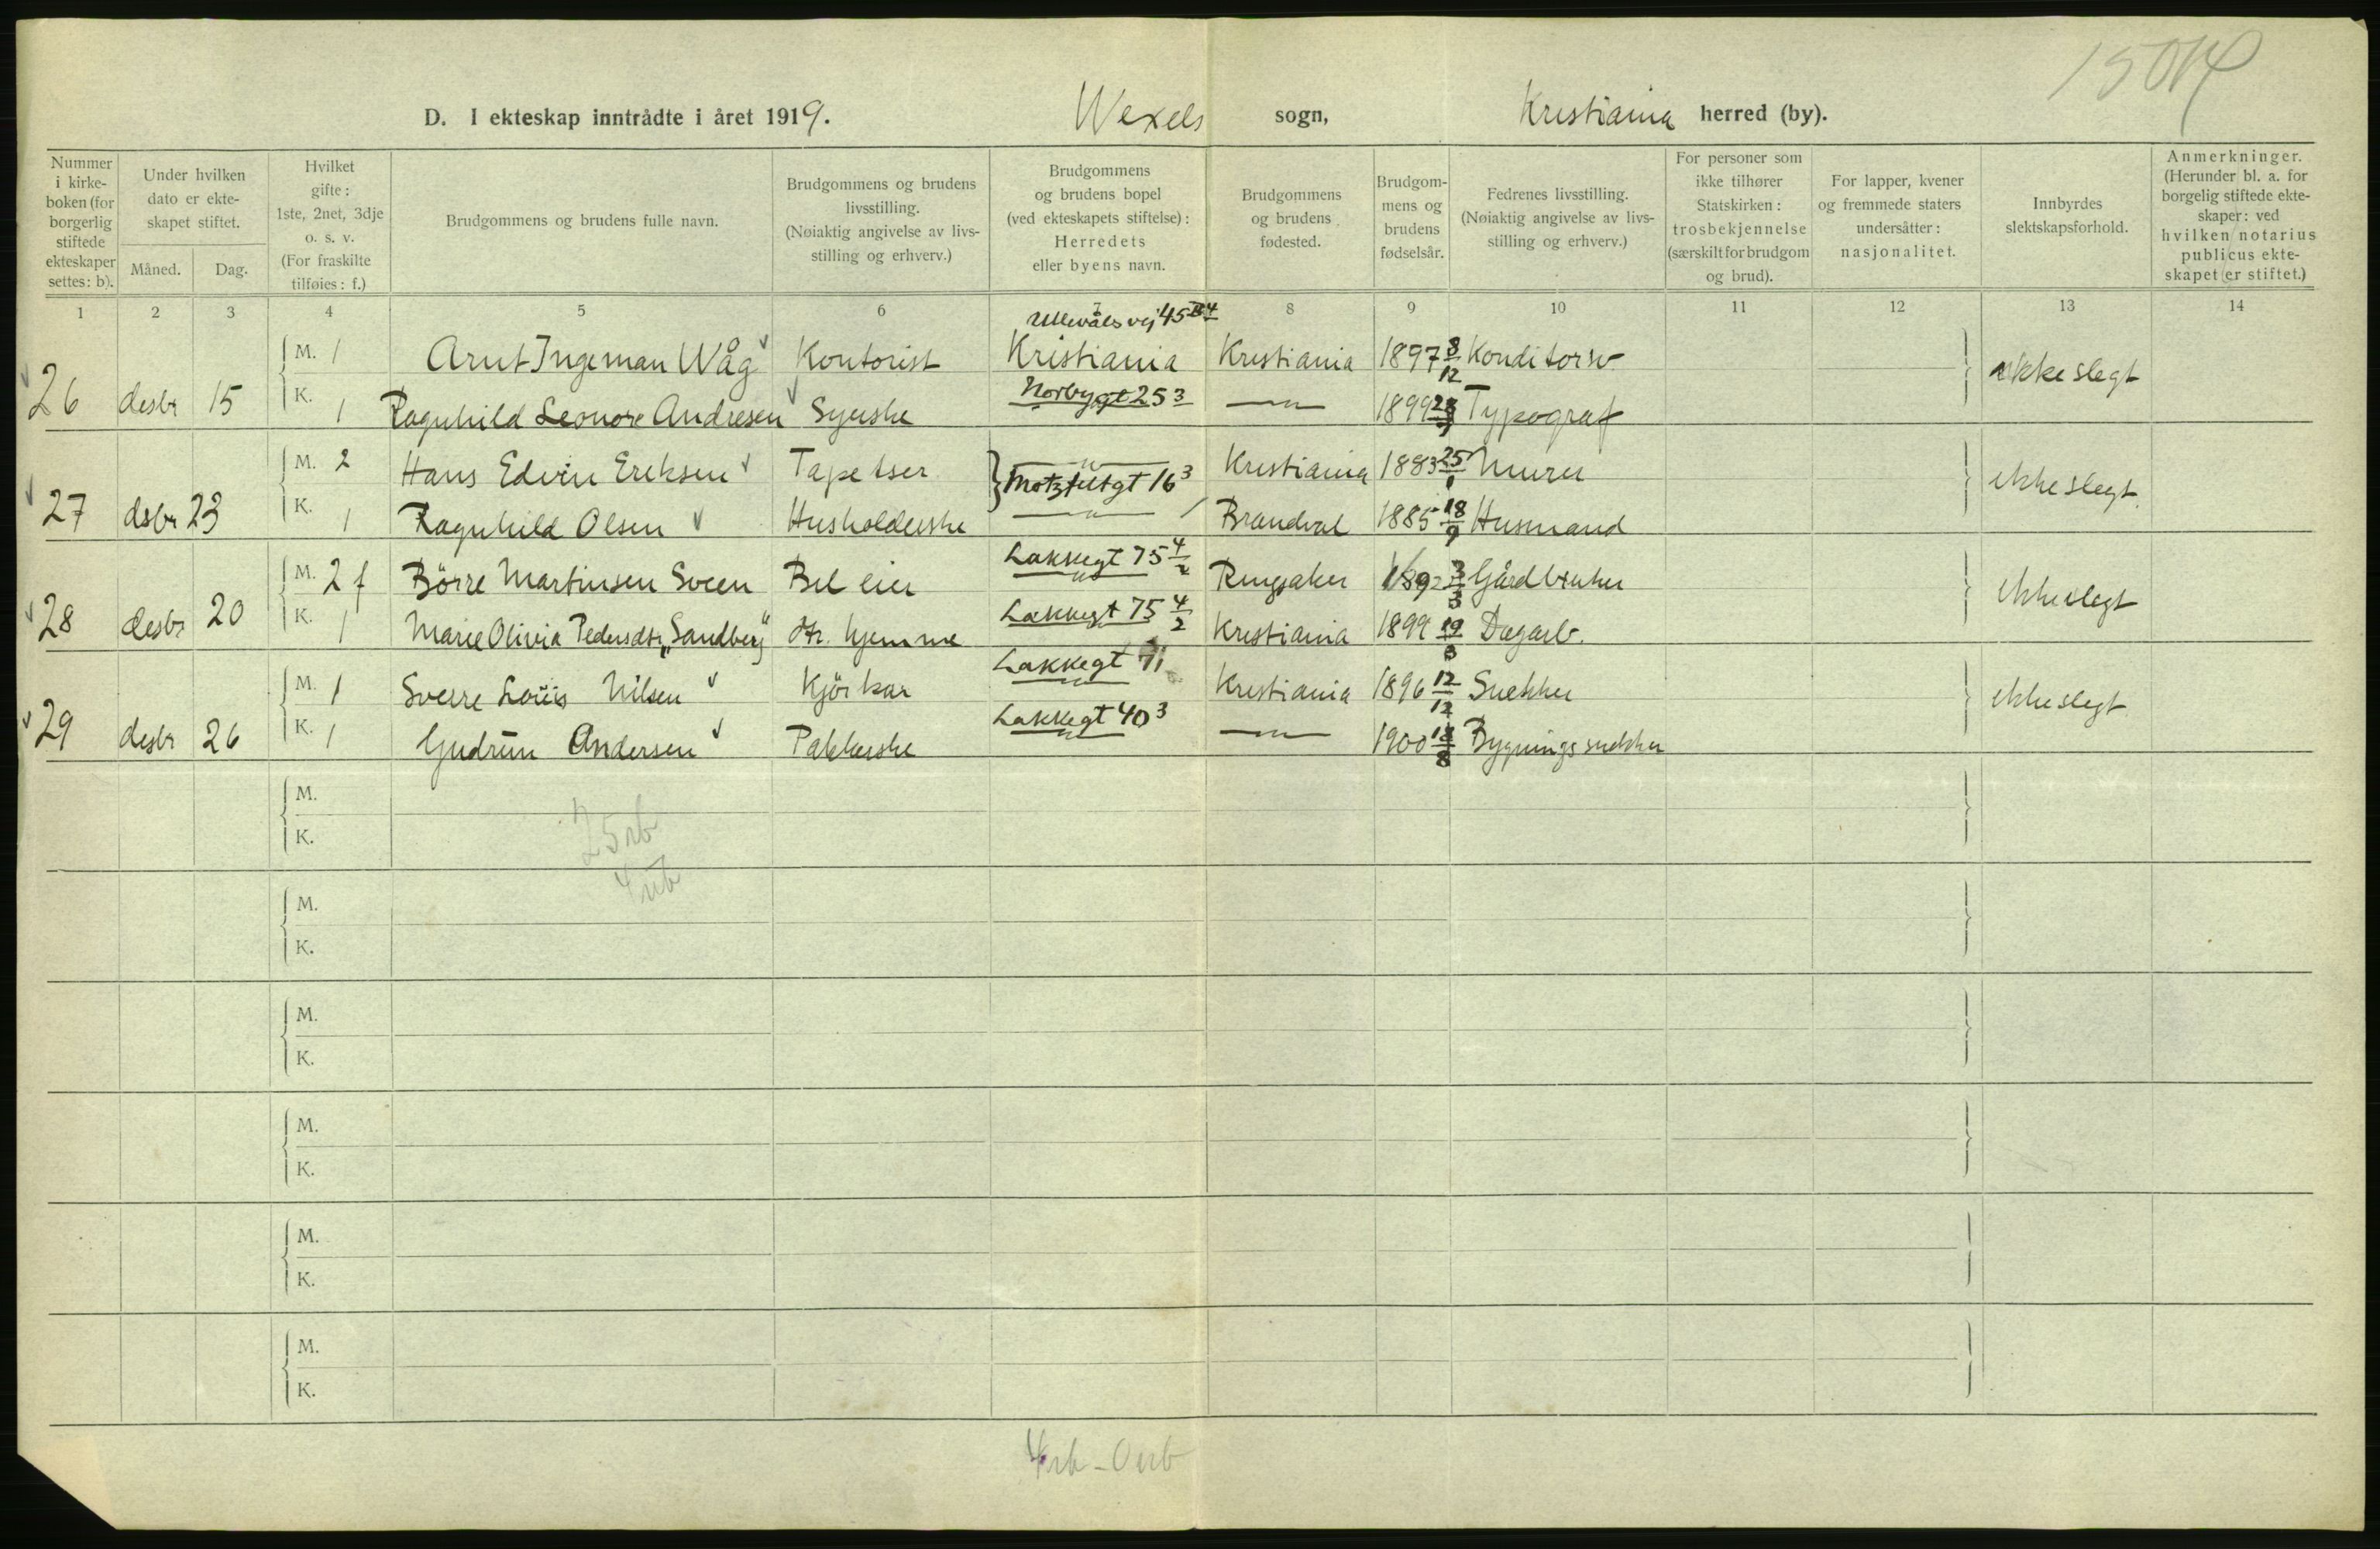 1504
D. I ekteskap inntrådte i året 1919. Wexels sogn, Kristiania herred (by).
Nummer i kirkeboken (for borgerlig stiftede ekteskaper settes: b).
Under hvilken dato er ekteskapet stiftet.
Måned. Dag.
Hvilket gifte: 1ste, 2net, 3dje o. s. v. (For fraskilte tilføies: f.)
Brudgommens og brudens fulle navn.
Brudgommens og brudens livsstilling. (Nøiaktig angivelse av livsstilling og erhverv.)
Brudgommens og brudens bopel (ved ekteskapets stiftelse): Herredets eller byens navn.
Brudgommens og brudens fødested.
Brudgommens og brudens fødselsår.
Fedrenes livsstilling. (Nøiaktig angivelse av livsstilling og erhverv.)
For personer som ikke tilhører Statskirken: trosbekjennelse (særskilt for brudgom og brud).
For lapper, kvener og fremmede staters undersåtter: nasjonalitet.
Innbyrdes slektskapsforhold.
Anmerkninger. (Herunder bl. a. for borgelig stiftede ekteskaper: ved hvilken notarius publicus ekteskapet er stiftet.)
1 2 3 4 5 6 7 8 9 10 11 12 13 14
Ullevålsvej 45
26 desbr 15 M. 1 Arnt Ingeman Wåg Kontorist Kristiania Kristiania 1897 8/12 Konditorsv ikke slegt
K. 1 Ragnhild Leonore Andresen Syerske Norbygt 25 3 —"— 1899 Typograf
27 dsbr 23 M. 2 Hans Edvin Eriksen Tapetser —"— Motzfeltgt 16 3 Kristiania 1883 25/1 Murer ikke slegt
K. 1 Ragnhild Olsen Husholderske —"— Brandval 1885 18/9 Husmand
28 desbr 20 M. 2 f Börre Martinsen Sveen Bileier Lakkegt 75 4/2 Ringsaker 1892 3/3 Gårdbruker ikke slegt
K. 1 Marie Olivia Pedersdtr „Sandberg" dtr. hjemme Lakkegt 75 4/2 Kristiania 1899 Dagarb.
29 desbr 26 M. 1 Sverre Louis Nilsen Kjörkar Lakkegt 71 Kristiania 1896 12/12 Snekker ikke slegt
K. 1 Gudrun Andersen Pakkerske Lakkegt 40 3 —"— 1900 18/8 Bygningssnekker
M.
K.
25 rb
4 ub
M.
K.
M.
K.
M.
K.
M.
K.
M.
K.
4 rb - 0 ub